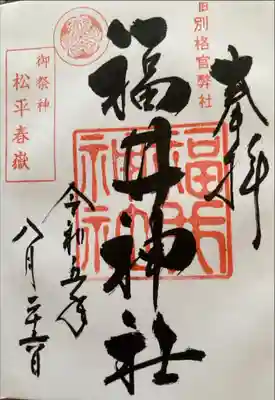 旧別格官弊社
奉拝
福井神社
福井神社
御祭神
松平春嶽
令和五年
八月二十六日